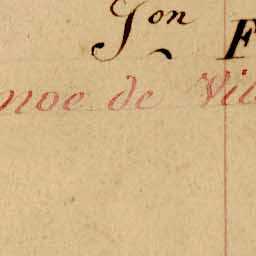 Son F
noe de Vil